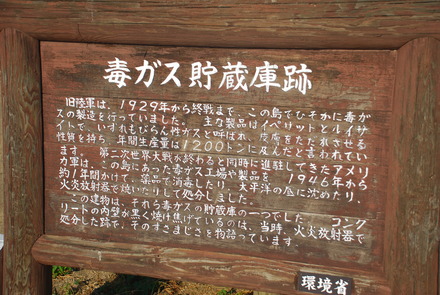 毒ガス貯蔵庫跡
旧陸軍は、1929年から終戦まで、この島でひそかに毒ガ
スの製造を行っていました。主な製品はイペリットとルイサ
イトで、いずれもびらん性ガスと呼ばれ、皮膚をただれさせる
性質を持ち、年間生産量は1200トンに及んだと言われてい
ます。第二次世界大戦が終わると同時に進駐してきたアメリ
カ軍は、この島にあった毒ガス工場や製品を、1946年から
約1年間かけて、薬品で消毒したり、太平洋の底に沈めたり、
火炎放射器で焼いたりして処分しました。
この建物は、それら毒ガスの貯蔵庫の一つでした。コンク
リートの内壁が黒く焼け焦げているのは、当時、火炎放射器で
処分した跡で、そのすさまじさを物語っています。
環境省